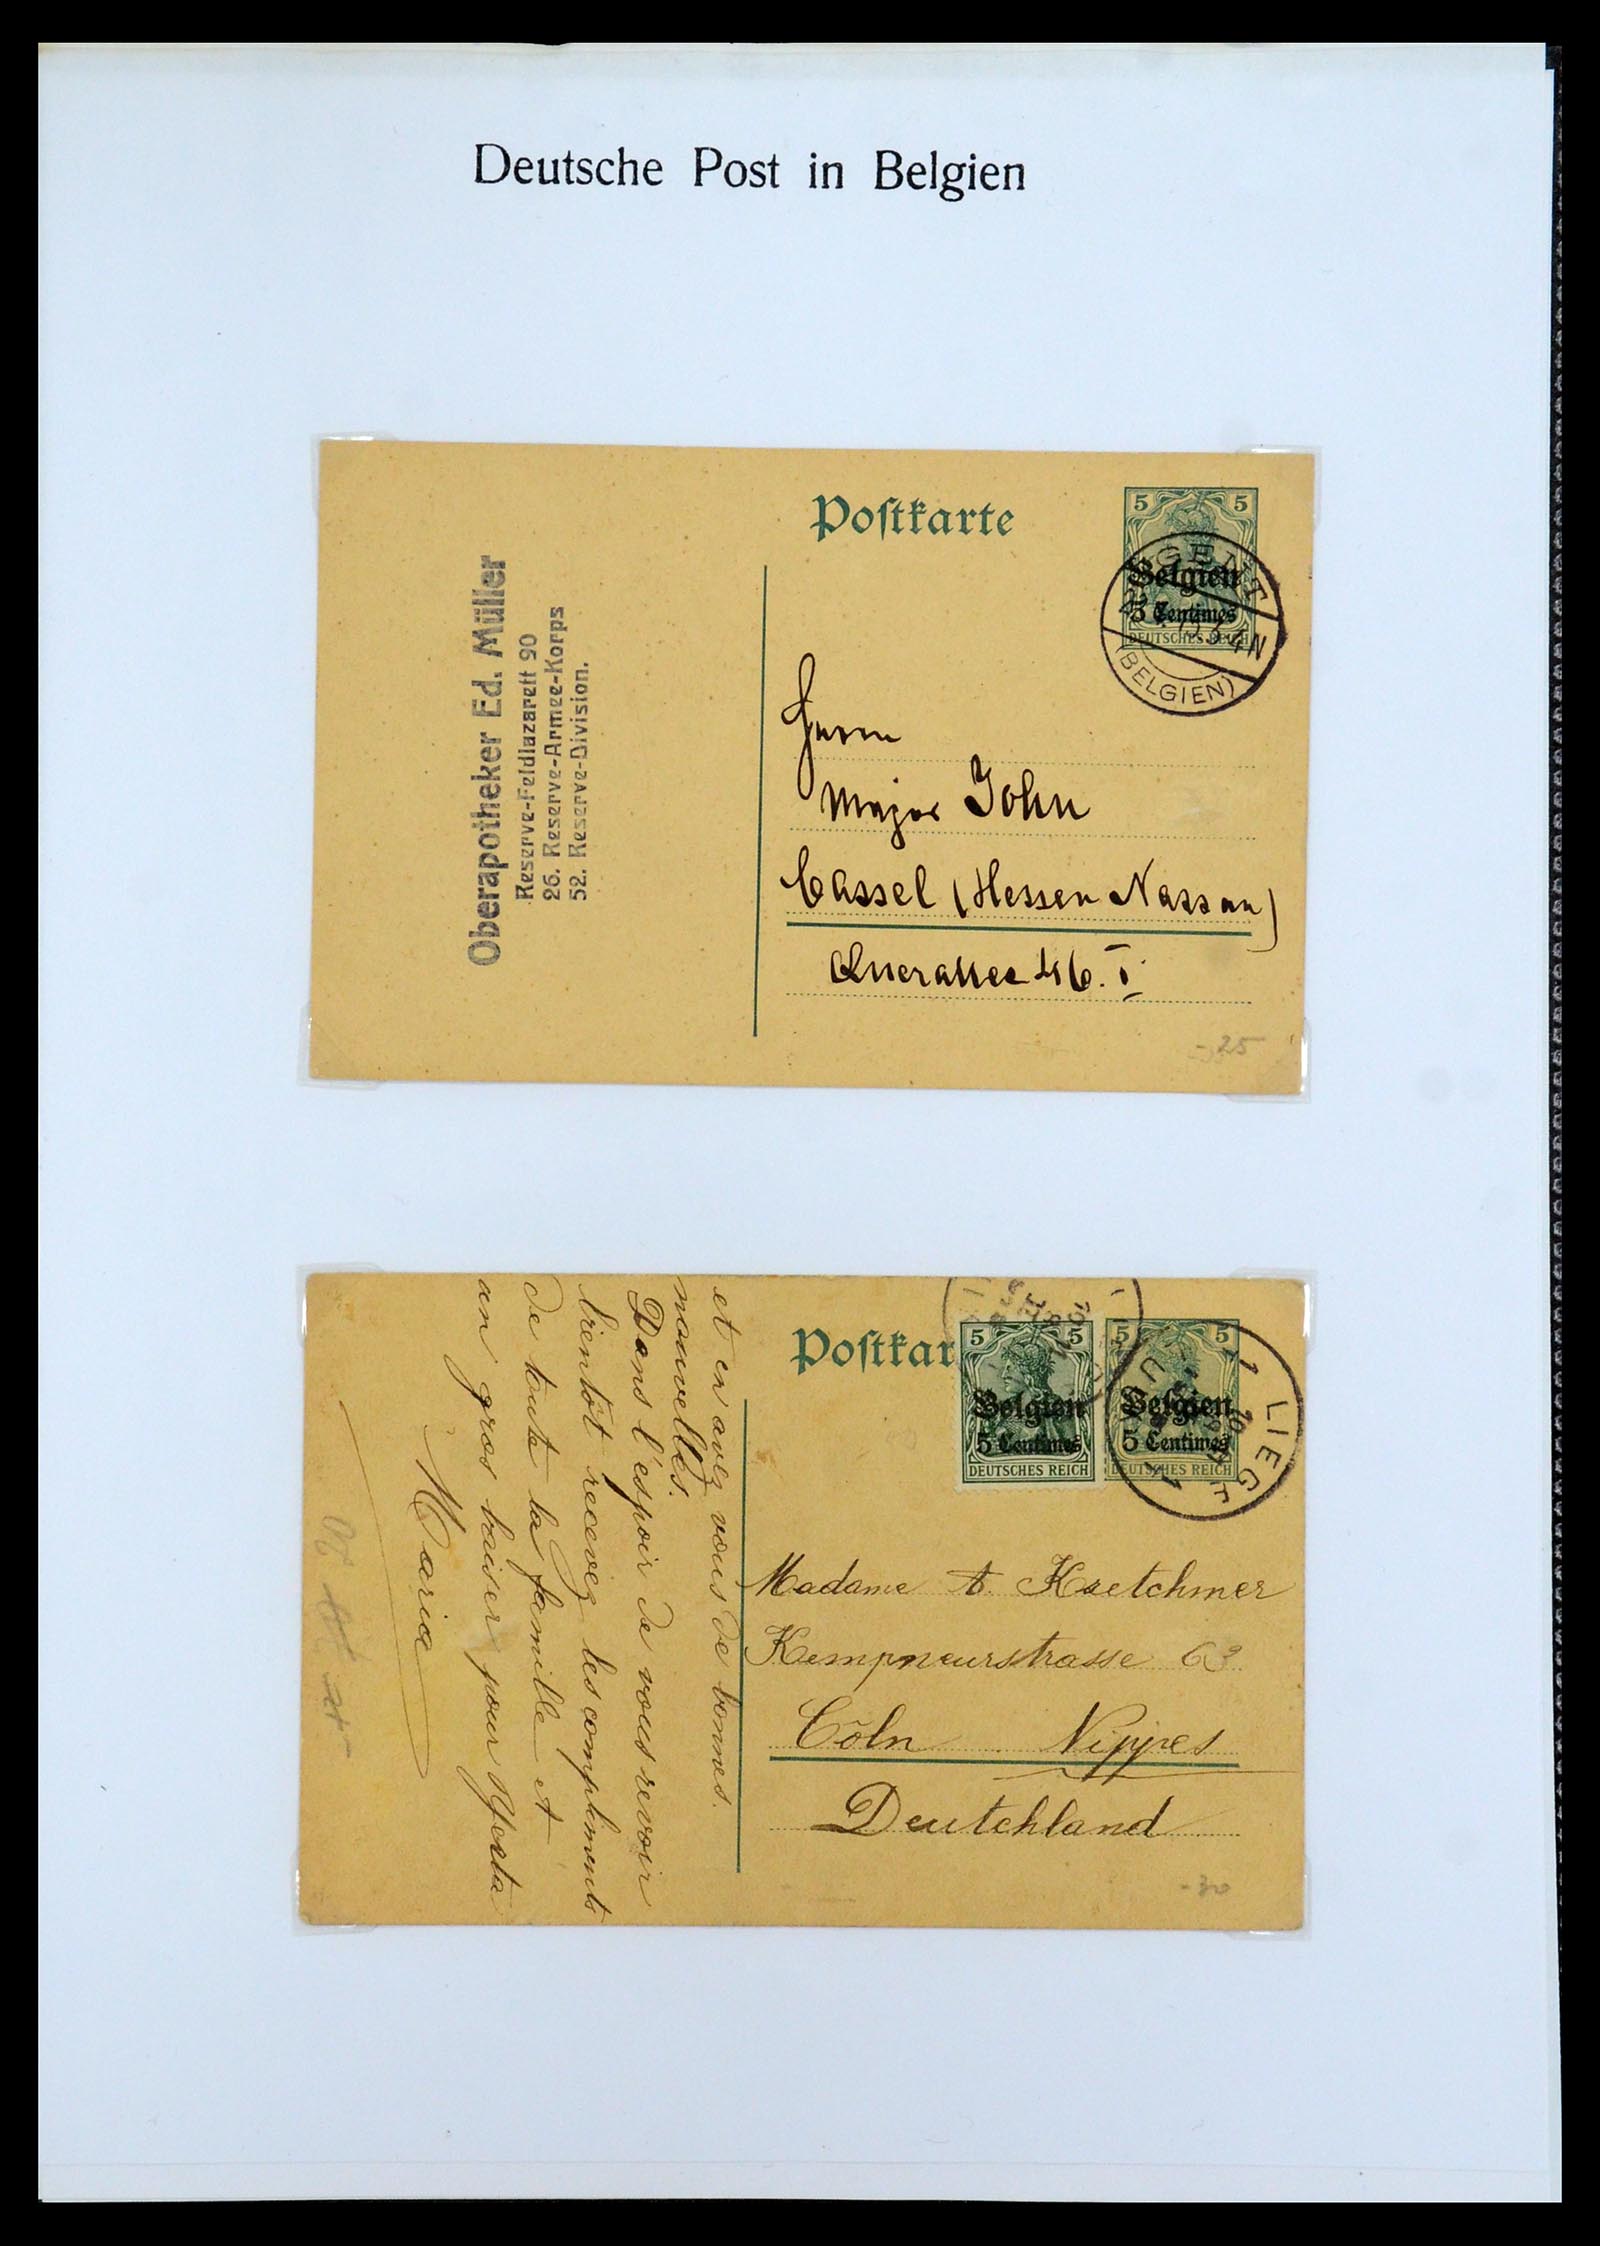 Deutsche Post in Belgien
Poſtkarte
5 5
Belgien
5 Centimes
DEUTSCHES REICH
GENT
4N
(BELGIEN)
Oberapotheker Ed. Müller
Reserve-Feldlazarett 90
26. Reserve-Armee-Korps
52. Reserve-Division.
Herrn
Major John
Cassel (Hessen Nassau)
Querallee 46. I.
- 25
Poſtkar
5 5
Belgien
5 Centimes
DEUTSCHES REICH
5 5
Belgien
5 Centimes
DEUTSCHES REICH
1 LIEG 1
et en avez vous de bonnes.
nouvelles.
Dans l'espoir de vous revoir
bientôt recevez les compliments
de toute la famille et
un gros baiser pour
Maria
Madame Kretchmer
Kempneurstrasse 63
Cöln Nippes
Deutchland
- 30